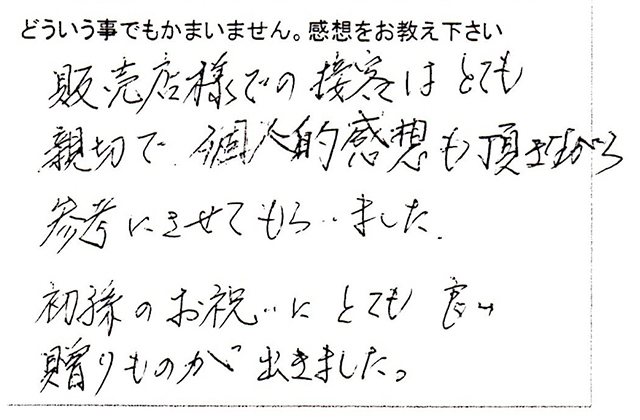 どういう事でもかまいません。感想をお教え下さい
販売店様での接客はとても
親切で 個人的感想も頂きながら
参考にさせてもらいました.
初孫のお祝いにとても良い
贈りものが出きました。